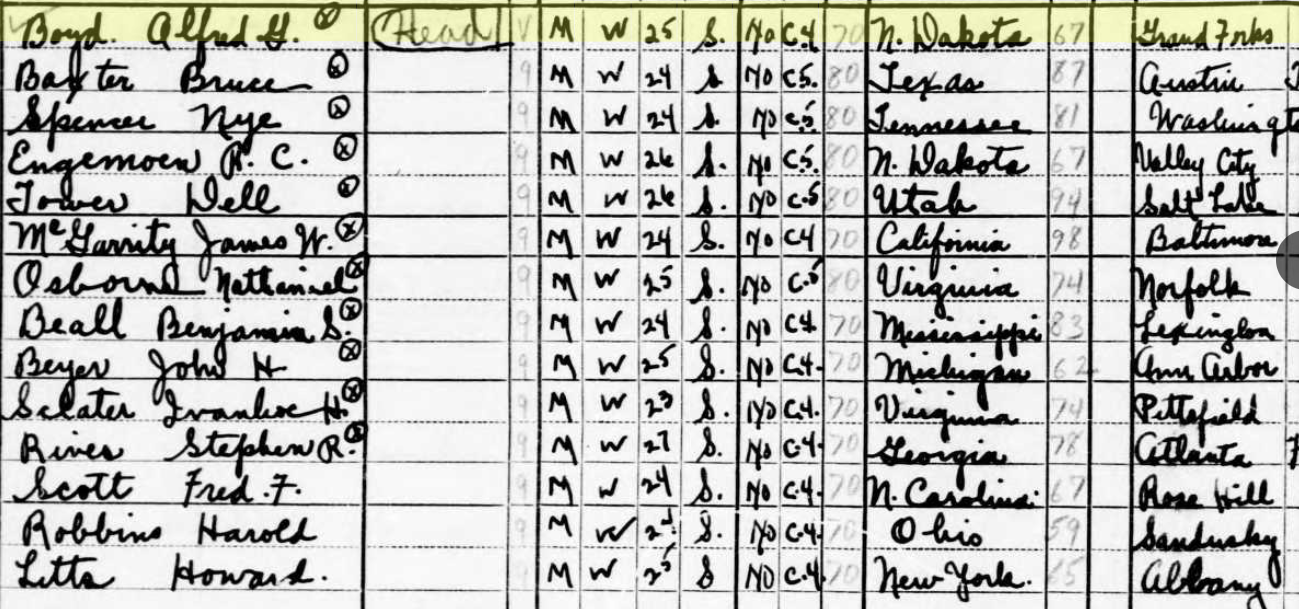 Boyd. Alfred G. ⓧ Head V M W 25 S. No C.4 70 N. Dakota 67 Grand Forks
Baxter Bruce ⓧ 9 M W 24 S No C5. 80 Texas 87 Austin
Spencer Nye ⓧ 9 M W 24 S. No C.5. 80 Tennessee 81 Washington
Engemoen R. C. ⓧ 9 M W 26 S. No C.5. 80 N. Dakota 67 Valley City
Tower Dell ⓧ 9 M W 26 S. No C.5 80 Utah 94 Salt Lake
McGarrity James W. ⓧ 9 M W 24 S. No C4 70 California 98 Baltimore
Osborne Nathaniel ⓧ 9 M W 25 S. No C.5 80 Virginia 74 Norfolk
Beall Benjamin S. ⓧ 9 M W 24 S. No C4 70 Mississippi 83 Lexington
Beyer John H ⓧ 9 M W 25 S. No C.4. 70 Michigan 62 Ann Arbor
Sclater Ivanhoe H. ⓧ 9 M W 23 S. No C.4. 70 Virginia 74 Pittsfield
Rives Stephen R. ⓧ 9 M W 27 S. No C.4. 70 Georgia 78 Atlanta
Scott Fred. F. 9 M W 24 S. No C.4. 70 N. Carolina. 67 Rose Hill
Robbins Harold 9 M W S. No C.4. 70 Ohio 59 Sandusky
Litts Howard. 9 M W 25 S No C.4. 70 New York. 65 Albany